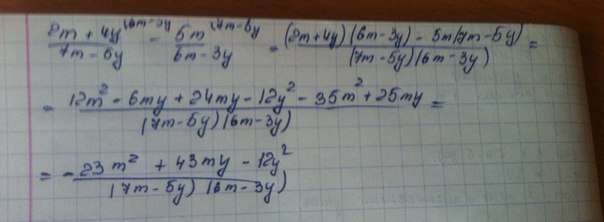 (2m + 4y)^(6m-3y) / (7m - 5y) - 5m^(7m-5y) / (6m - 3y) = ((2m+4y)(6m-3y) - 5m(7m-5y)) / ((7m-5y)(6m-3y)) =
= (12m² - 6my + 24my - 12y² - 35m² + 25my) / ((7m-5y)(6m-3y)) =
= - (23m² + 43my - 12y²) / ((7m-5y)(6m-3y))